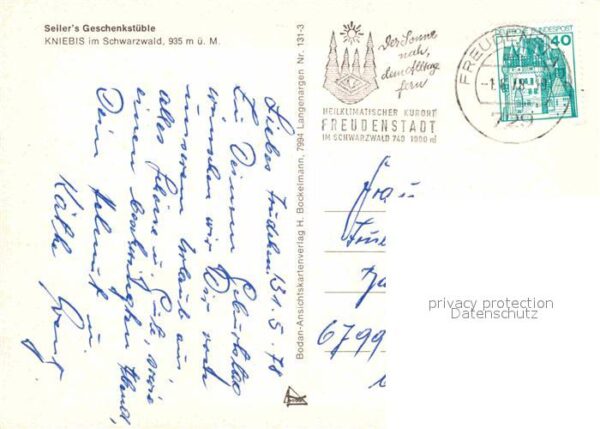 Seiler's Geschenkstüble
KNIEBIS im Schwarzwald, 935 m ü. M.
Bodan-Ansichtskartenverlag H. Bockelmann, 7994 Langenargen Nr. 131-3
Der Sonne
nah,
dem Alltag
fern
HEILKLIMATISCHER KURORT
FREUDENSTADT
IM SCHWARZWALD 740-1000 m
FREUDEN
729
BUNDESPOST
40
Liebes 31.5.78
Zu Deinem Geburtstag
wünschen wir Dir von
unserem Urlaub aus
alles Liebe u. Gute, sowie
einen beschwingten Abend,
Dein Helmut u.
Käthe
Frau
6799
privacy protection
Datenschutz